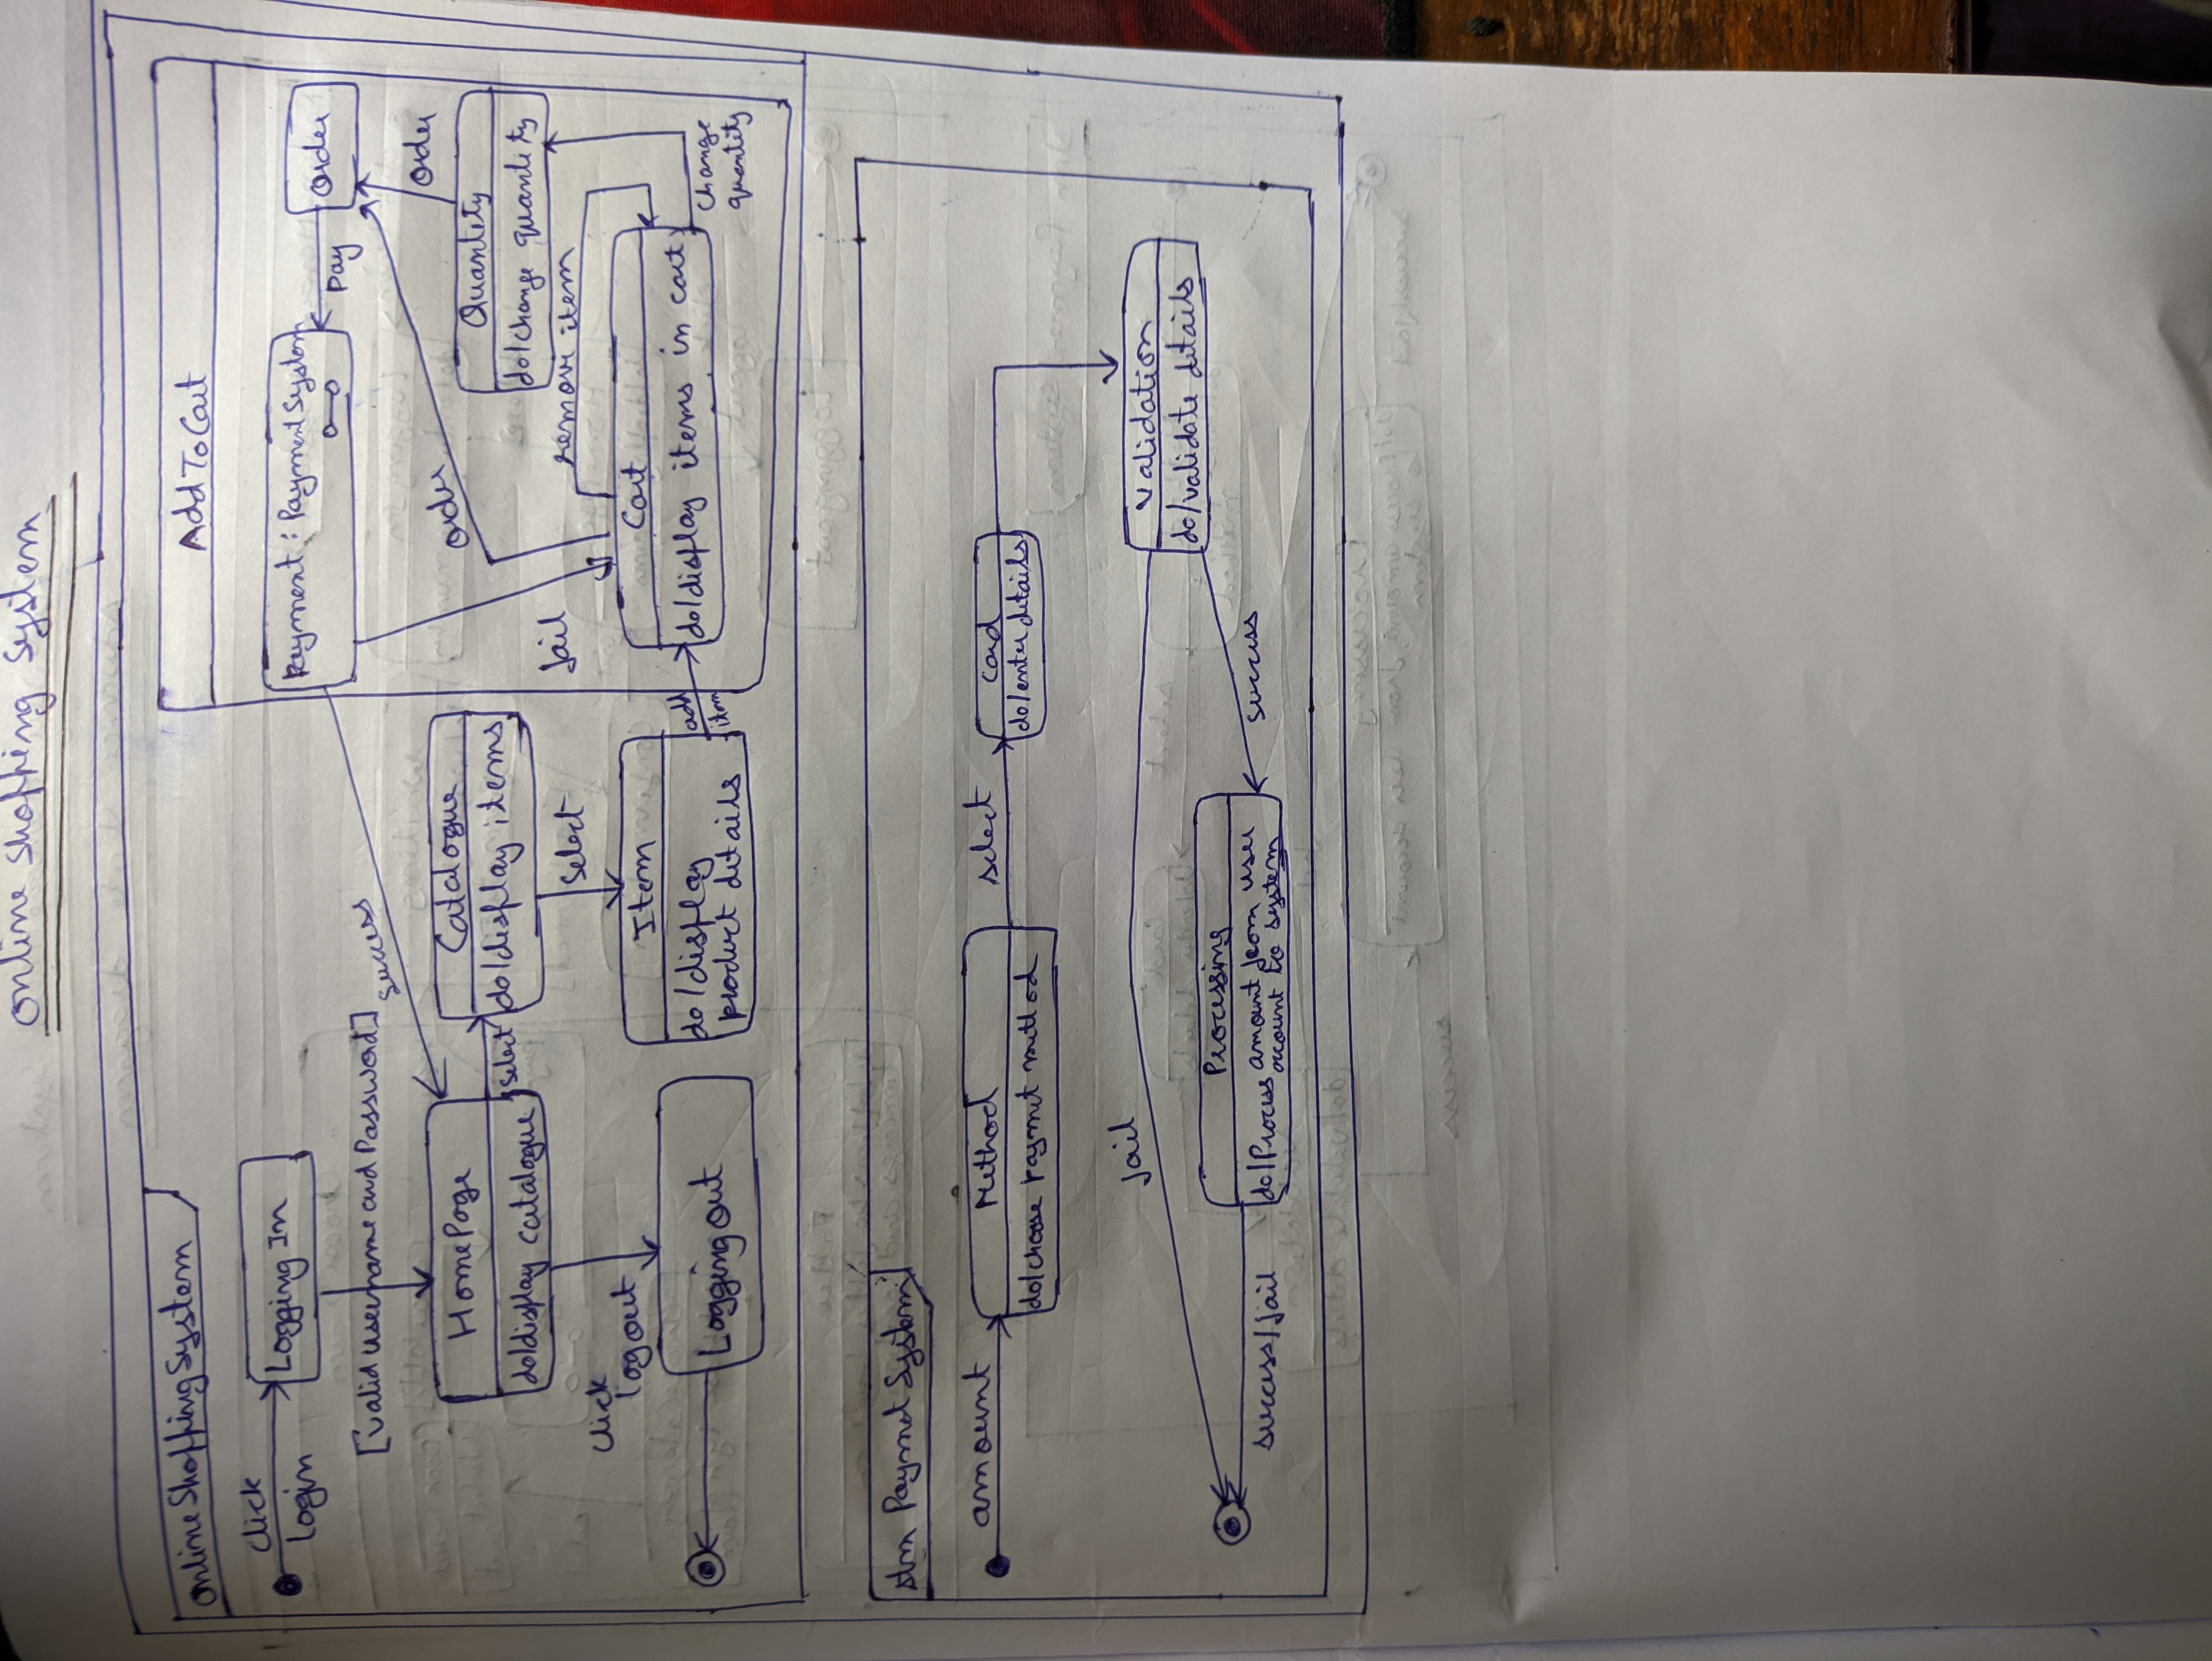 Online Shopping System
Online Shopping System
Click
login
Logging In
[Valid username and Password]
HomePage
do/display catalogue
select
Catalogue
do/display items
select
Item
do/display
product details
add
item
click
logout
Logging out
success
Add To Cart
Payment : Payment System
Pay
order
order
order
Quantety
do/change quantity
fail
remove item
Cart
do/display items in cart
change
quantity
stm Paymet System
amount
Method
do/choose paymet method
select
Card
do/enter details
Validation
do/validate details
fail
success
Processing
do/Process amount from user
account to system
success/fail